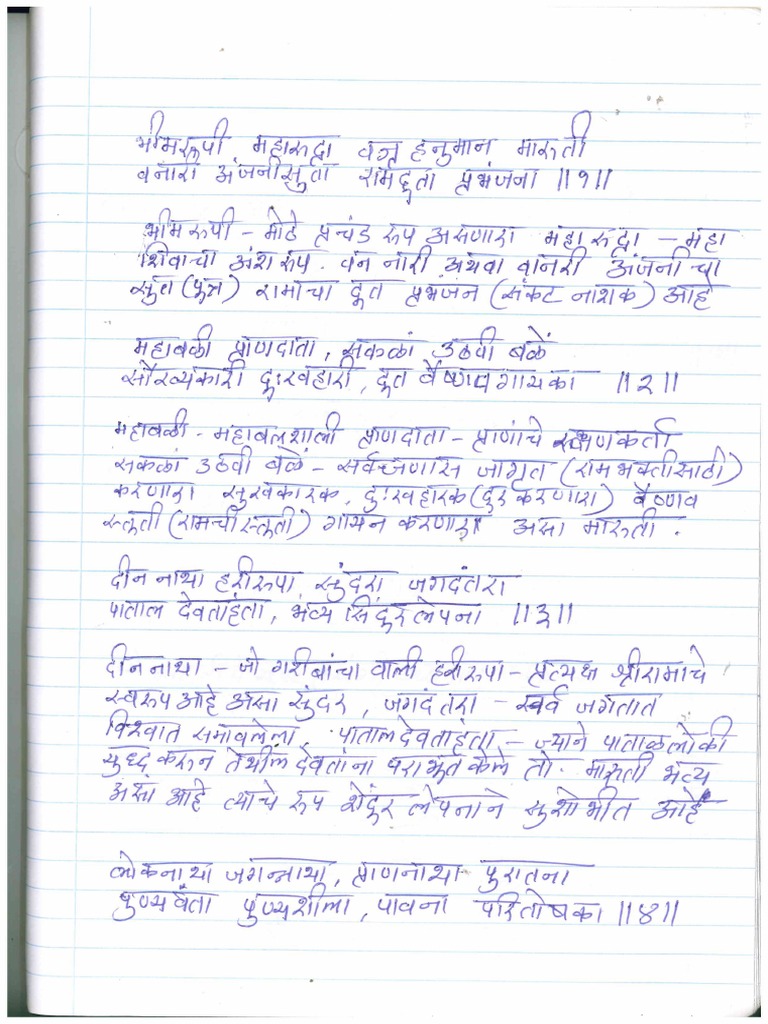 भीमरूपी महारुद्रा वज्र हनुमान मारुती
वनारी अंजनीसुता रामदूता प्रभंजना ॥१॥
भीमरुपी - मोठे प्रचंड रुप असणारा महारुद्रा - महा
शिवाचा अंश रुप. वन नारी अथवा वानरी अंजनीचा
सुत (पुत्र) रामाचा दूत प्रभंजन (संकट नाशक) आहे
महाबळी प्राणदाता, सकळां उठवी बळें
सौख्यकारी दुःखहारी, दूत वैष्णव गायका ॥२॥
महाबळी - महाबलशाली प्राणदाता - प्राणांचे रक्षणकर्ता
सकळां उठवी बळें - सर्वजणास जागृत (राम भक्तीसाठी)
करणारा सुखकारक, दुःखहारक (दुर करणारा) वैष्णव
स्तुती (रामची स्तुती) गायन करणारा असा मारुती.
दीन नाथा हरीरुपा सुंदरा जगदंतरा
पाताल देवताहंता, भव्य सिंदुर लेपना ॥३॥
दीननाथा - जो गरीबांचा वाली हरीरुपा - प्रत्यक्ष श्रीरामाचे
स्वरुप आहे असा सुंदर, जगदंतरा - सर्व जगतात
विश्वात समावलेला. पातालदेवताहंता - ज्याने पाताळलोकी
युध्द करुन तेथील देवतांना पराभूत केले तो. मारुती भव्य
असा आहे त्याचे रुप शेंदुर लेपनाने सुशोभीत आहे
लोकनाथा जगन्नाथा, प्राणनाथा पुरातना
पुण्यवंता पुण्यशीला, पावना परितोषका ॥४॥